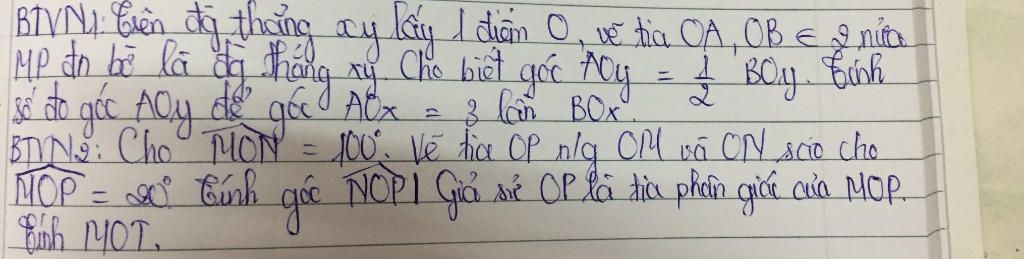 BTVN1: Trên đg thẳng xy lấy 1 điểm O, vẽ tia OA, OB ∈ 2 nửa
MP đn bờ là đg thẳng xy. Cho biết góc AOy = 1/2 BOy. Tính
số đo góc AOy để góc AOx = 3 lần BOx.
BTVN2: Cho MON = 100°. Vẽ tia OP n/g OM và ON sao cho
MOP = 20°. Tính góc NOP! Giả sử OP là tia phân giác của MOP.
Tính MOT.